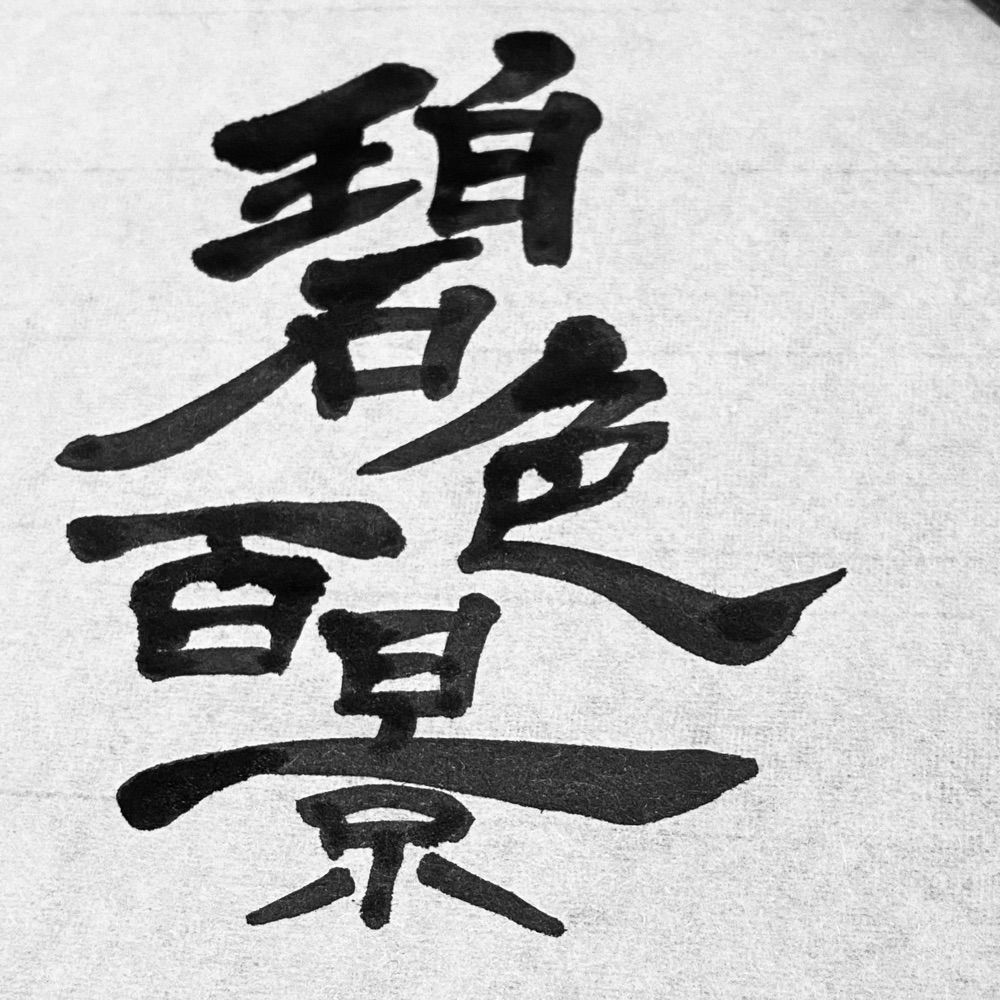 碧色百景